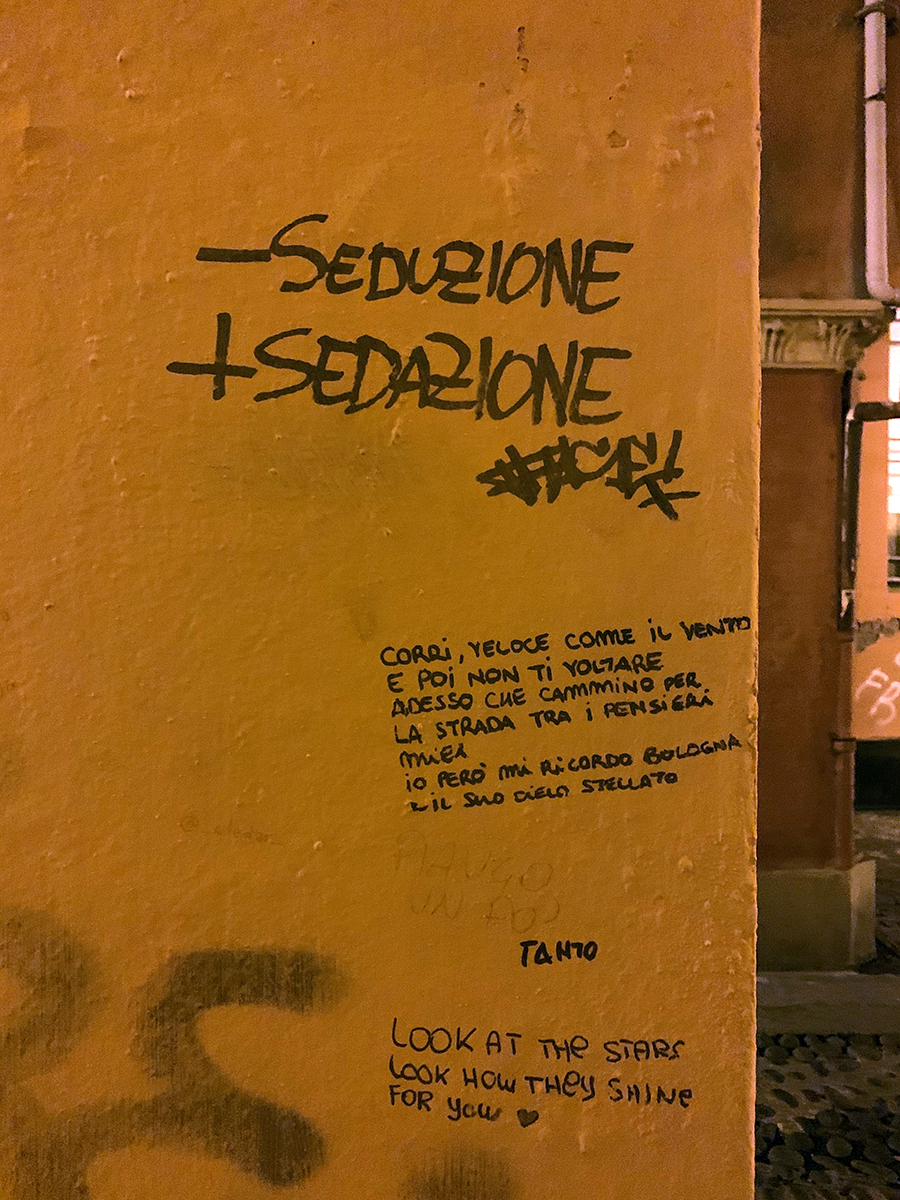 –SEDUZIONE
+SEDAZIONE
CORRi, VELOCE COME iL VENTO
E POi NON Ti VOLTARE
ADESSO CHE CAMMMiNO PER
LA STRADA TRA i PENSiERi
MiEi
iO PERÒ Mi RiCORDO BOLOGNA
E iL SUO CiELO STELLATO
UN
TANTO
LOOK AT THe STARS
LOOK HOW THEy SHiNe
FOR yOU ♥